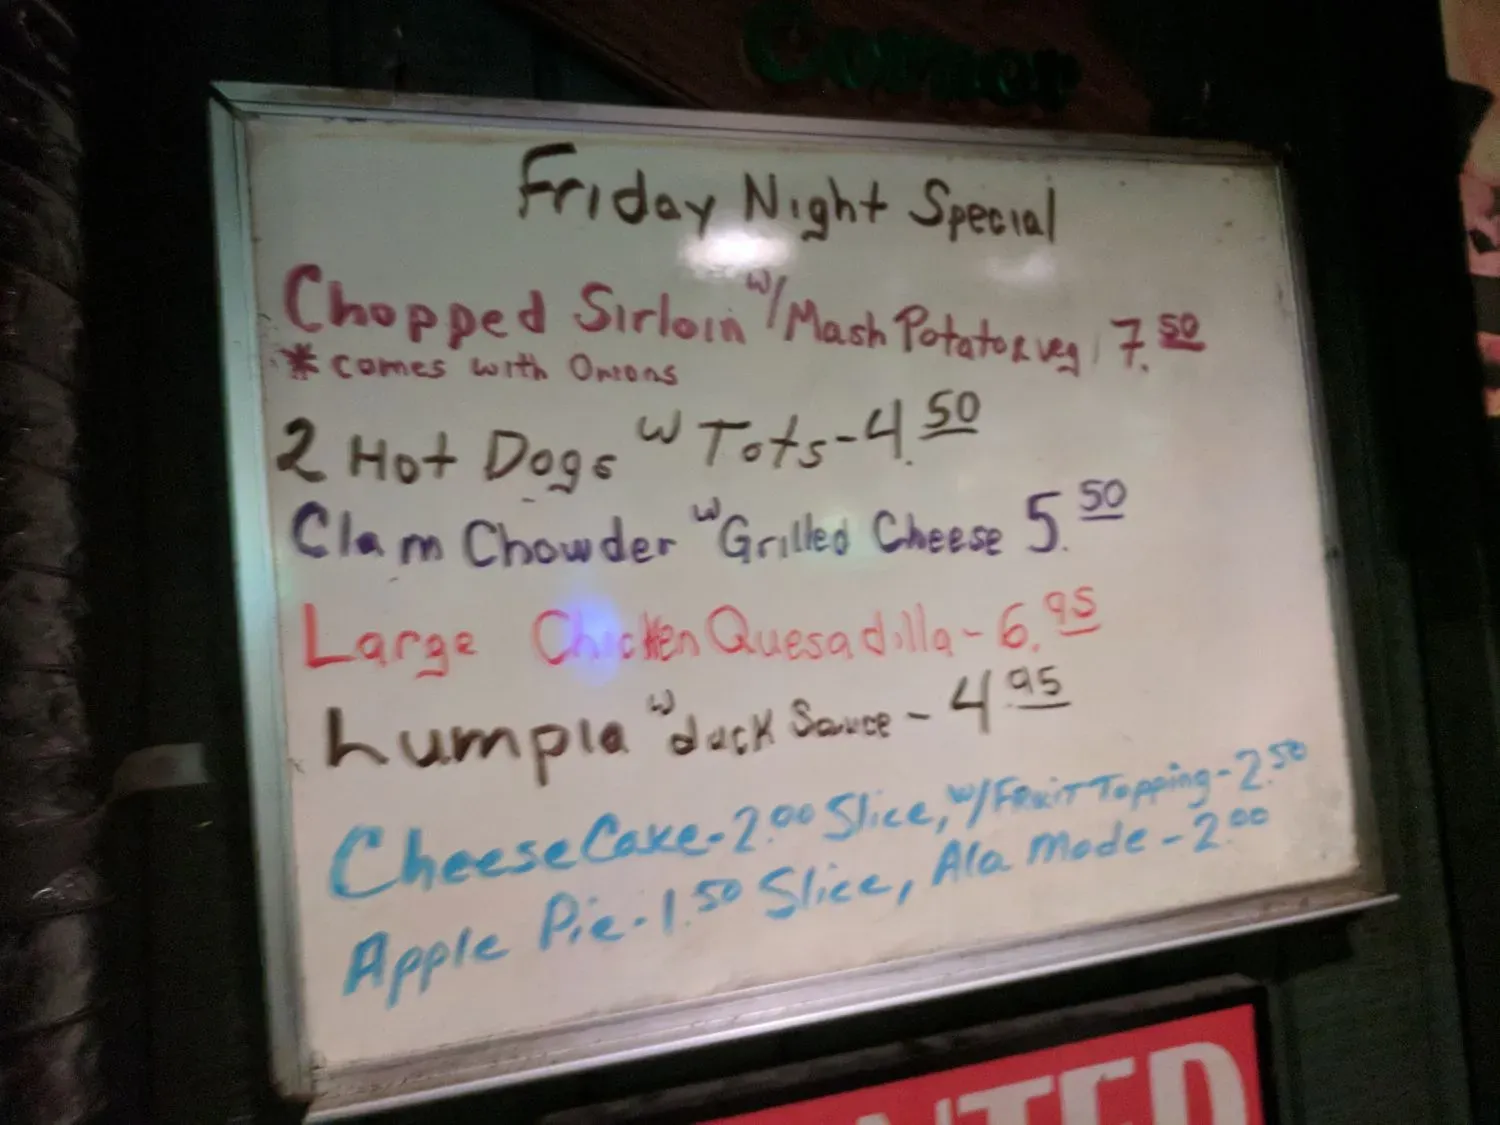 Corner
Friday Night Special
Chopped Sirloin w/ Mash Potato & veg 7.50
* comes with Onions
2 Hot Dogs w Tots - 4.50
Clam Chowder w Grilled Cheese 5.50
Large Chicken Quesadilla - 6.95
Lumpia w duck Sauce - 4.95
CheeseCake - 2.00 Slice, w/ Fruit Topping - 2.50
Apple Pie - 1.50 Slice, Ala mode - 2.00